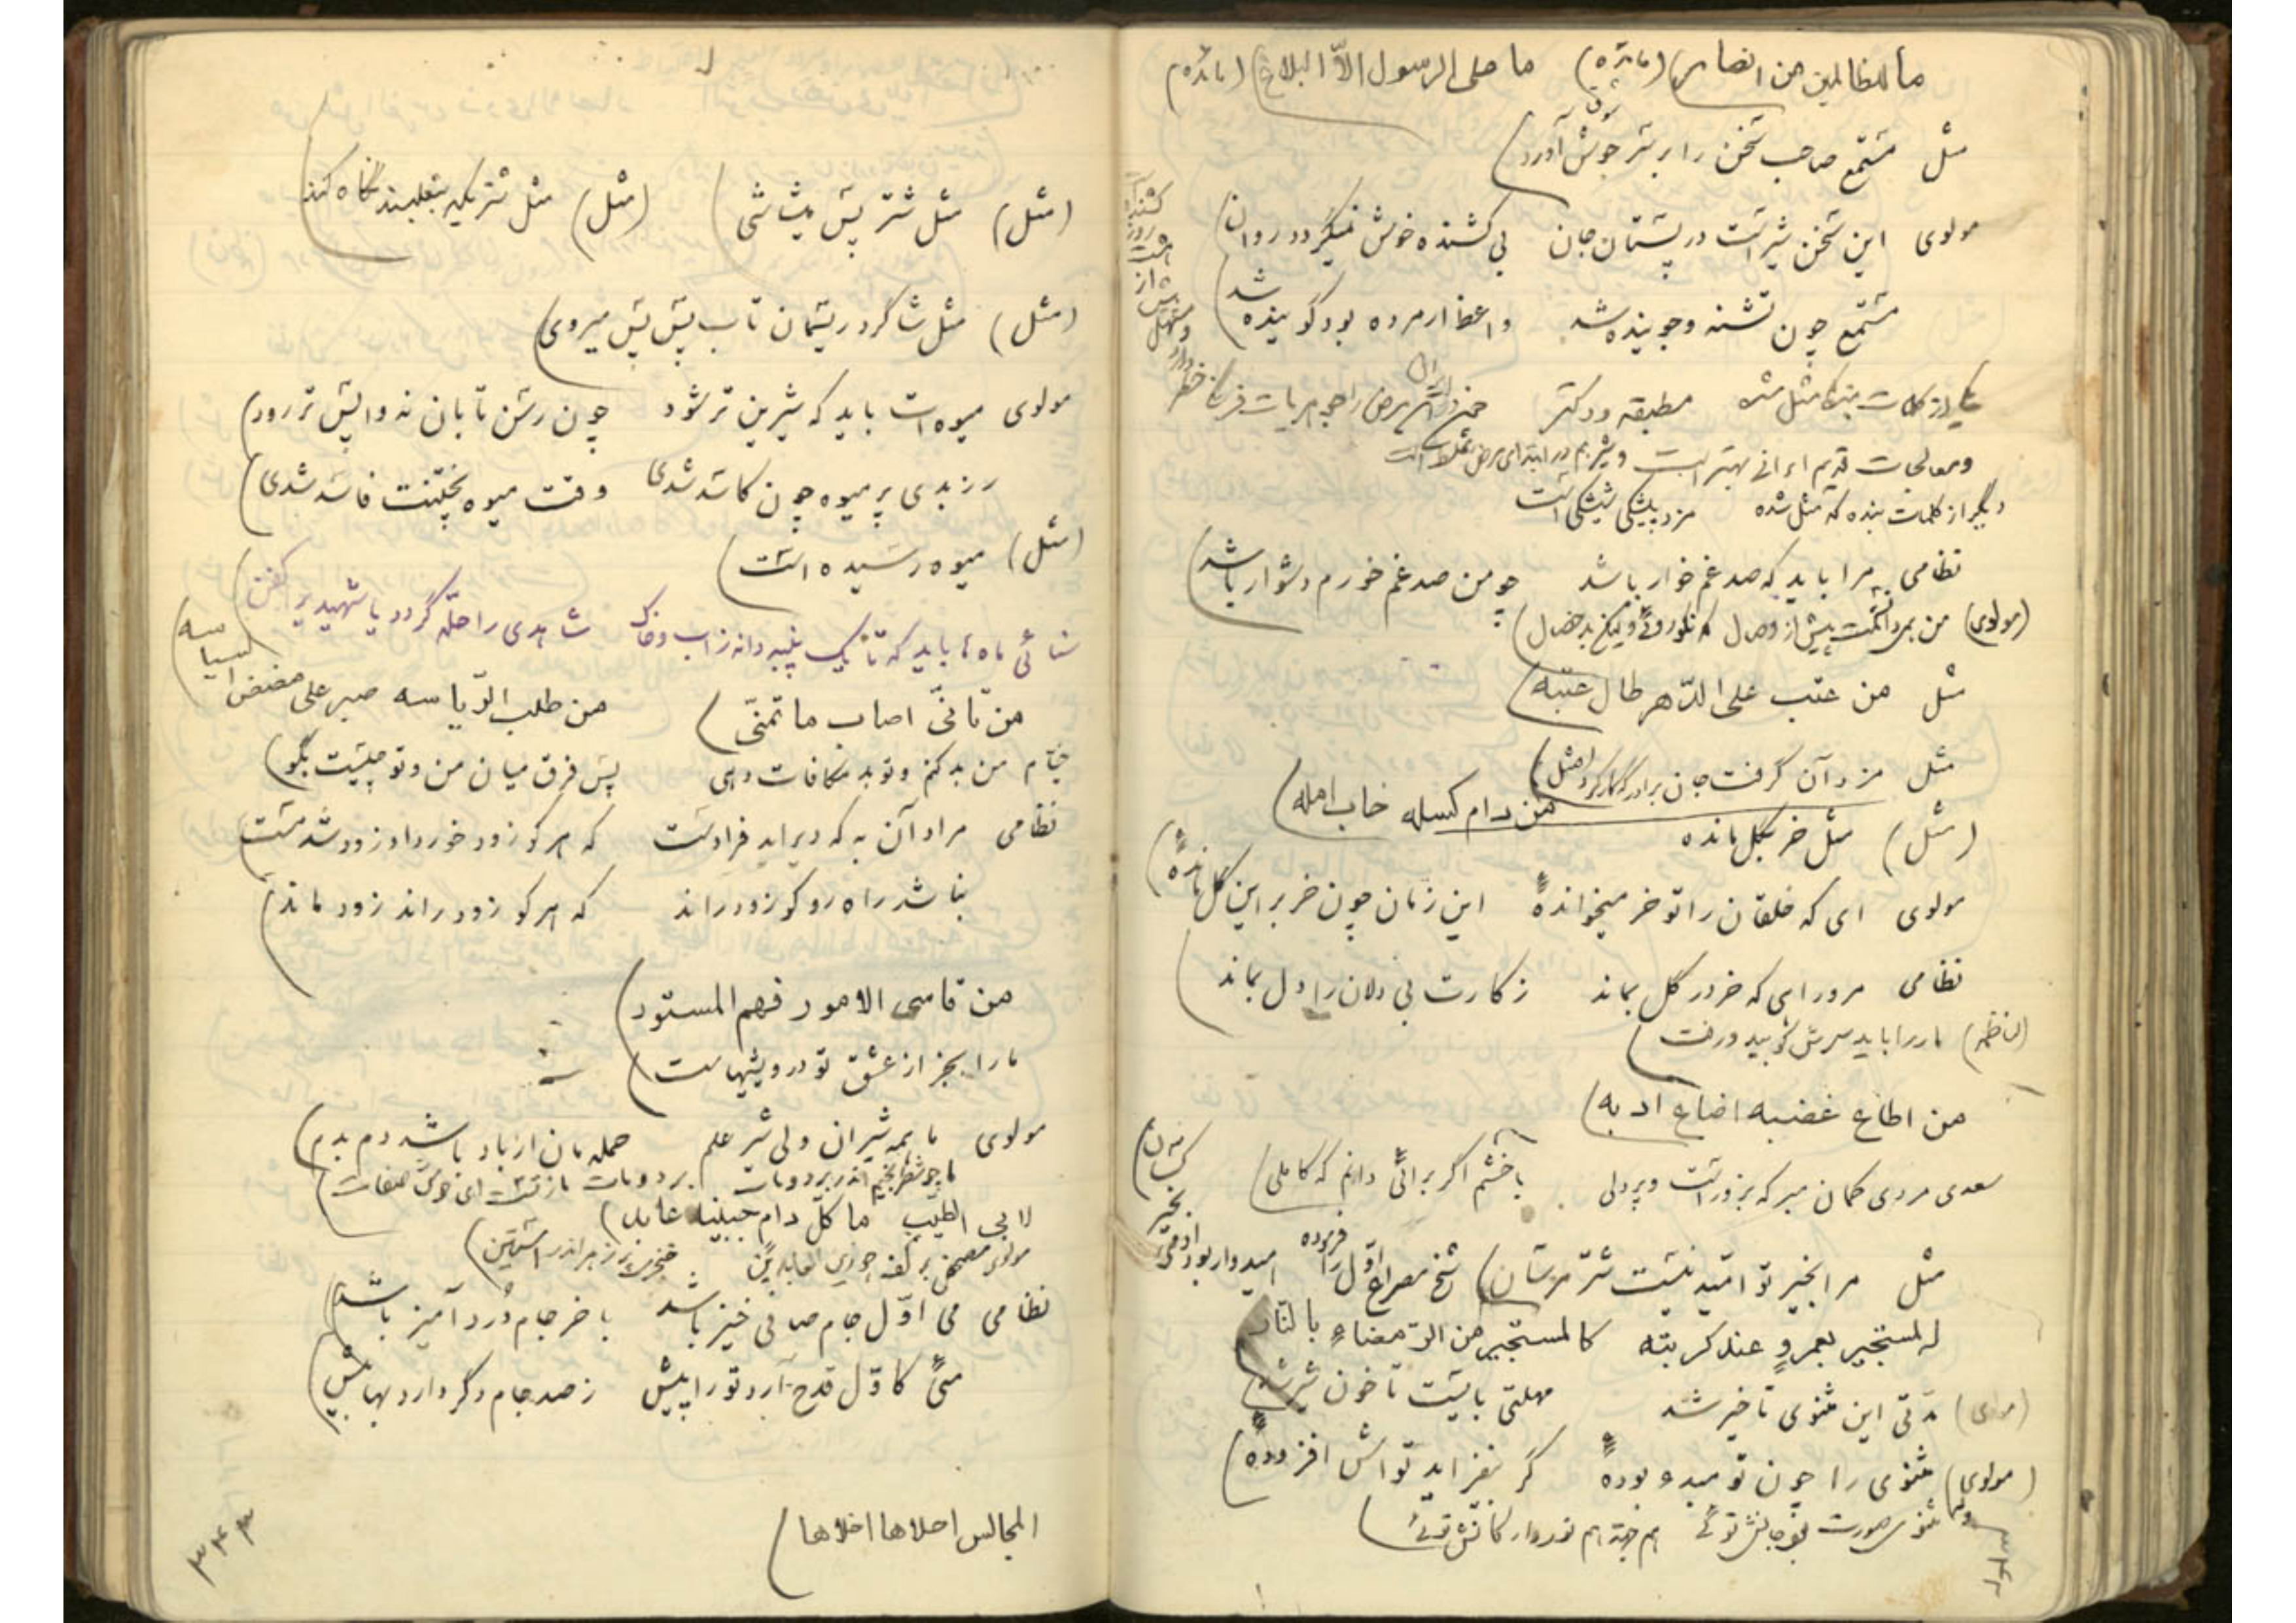 ما للظالمین من انصار (مائده) ما علی الرسول الاّ البلاغ (مائده)
مثل مستمع صاحب سخن را بر سر جوش آورد
مولوی این سخن شیر است در پستان جان بی کشنده خوش نمیگردد روان
مستمع چون تشنه و جوینده شد واعظ ار مرده بود گوینده شد
ومعالجات قدیم ایرانی بهتر است
دیگر از کلمات بنده که مثل شده مزد پیشکی شیشکی است
نظامی مرا باید که صد غم خوار باشد چو من صد غم خورم دشوار باشد
(مولوی)
مثل من عتب علی الدّهر طال عتبه
مثل مزد آن گرفت جان برادر که کار کرد (مثل)
من دام کسله خاب امله
(مثل) مثل خر بگل مانده
مولوی ای که خلقان را تو خر میخوانده این زمان چون خر بر این گل مانده
نظامی مرو راهی که خر در گل بماند ز کارت بی دلان را دل بماند
مار را باید سرش کوبید و رفت
من اطاع غضبه اضاع ادبه
سعدی مردی گمان مبر که بزور است و پردلی با خشم اگر برائی دانم که کاملی
مثل مرا بخیر تو امید نیست شر مرسان شیخ مصراع اوّل را فرموده امیدوار بود آدمی بخیر کسان
المستجیر بعمروٍ عند کربته کالمستجیر من الرّمضاء بالنّار
(مولوی) مدّتی این مثنوی تأخیر شد مهلتی بایست تا خون شیر شد
(مولوی) مثنوی را چون تو مبدء بوده گر نفزاید تواش افزوده
(مثل) مثل شتر پس پس شی (مثل)
(مثل) مثل شاگرد ریسمان تاب پس پس میروی
مولوی میوه ات باید که شیرین تر شود چون رسن تابان نه واپس تر رود
رز بدی پر میوه چون کاسد شدی وقت میوه پختنت فاسد شدی
(مثل) میوه رسیده است
سنائی ماه ها باید که تا یک پنبه دانه ز آب و خاک شاهدی را حلّه گردد یا شهیدی را کفن
من تأنّی اصاب ما تمنّی من طلب الرّیاسه صبر علی مضض السیاسه
خیّام من بد کنم و تو بد مکافات دهی پس فرق میان من و تو چیست بگو
نظامی مراد آن به که دیر اید فرادست که هر کو زود خورد او زود شد مست
نباشد راه رو کو زود راند که هر کو زود راند زود ماند
من قاسی الامور فهم المستور
ما را بجز از عشق تو درویشیهاست
مولوی ما همه شیران ولی شیر علم حمله مان از باد باشد دم بدم
ما چو شطرنجیم اندر برد و مات برد و مات ما ز تست ای خوش صفات
لابی الطیّب
مولوی مصحفی بر کف چو زین العابدین خنجری پر زهر اندر آستین
نظامی می اوّل جام صافی خیز باشد باخر جام دُرد آمیز باشد
میی کاوّل قدح آرد تو را پیش ز صد جام دگر دارد بها بیش
المجالس احلاها اخلاها
۳۴۳